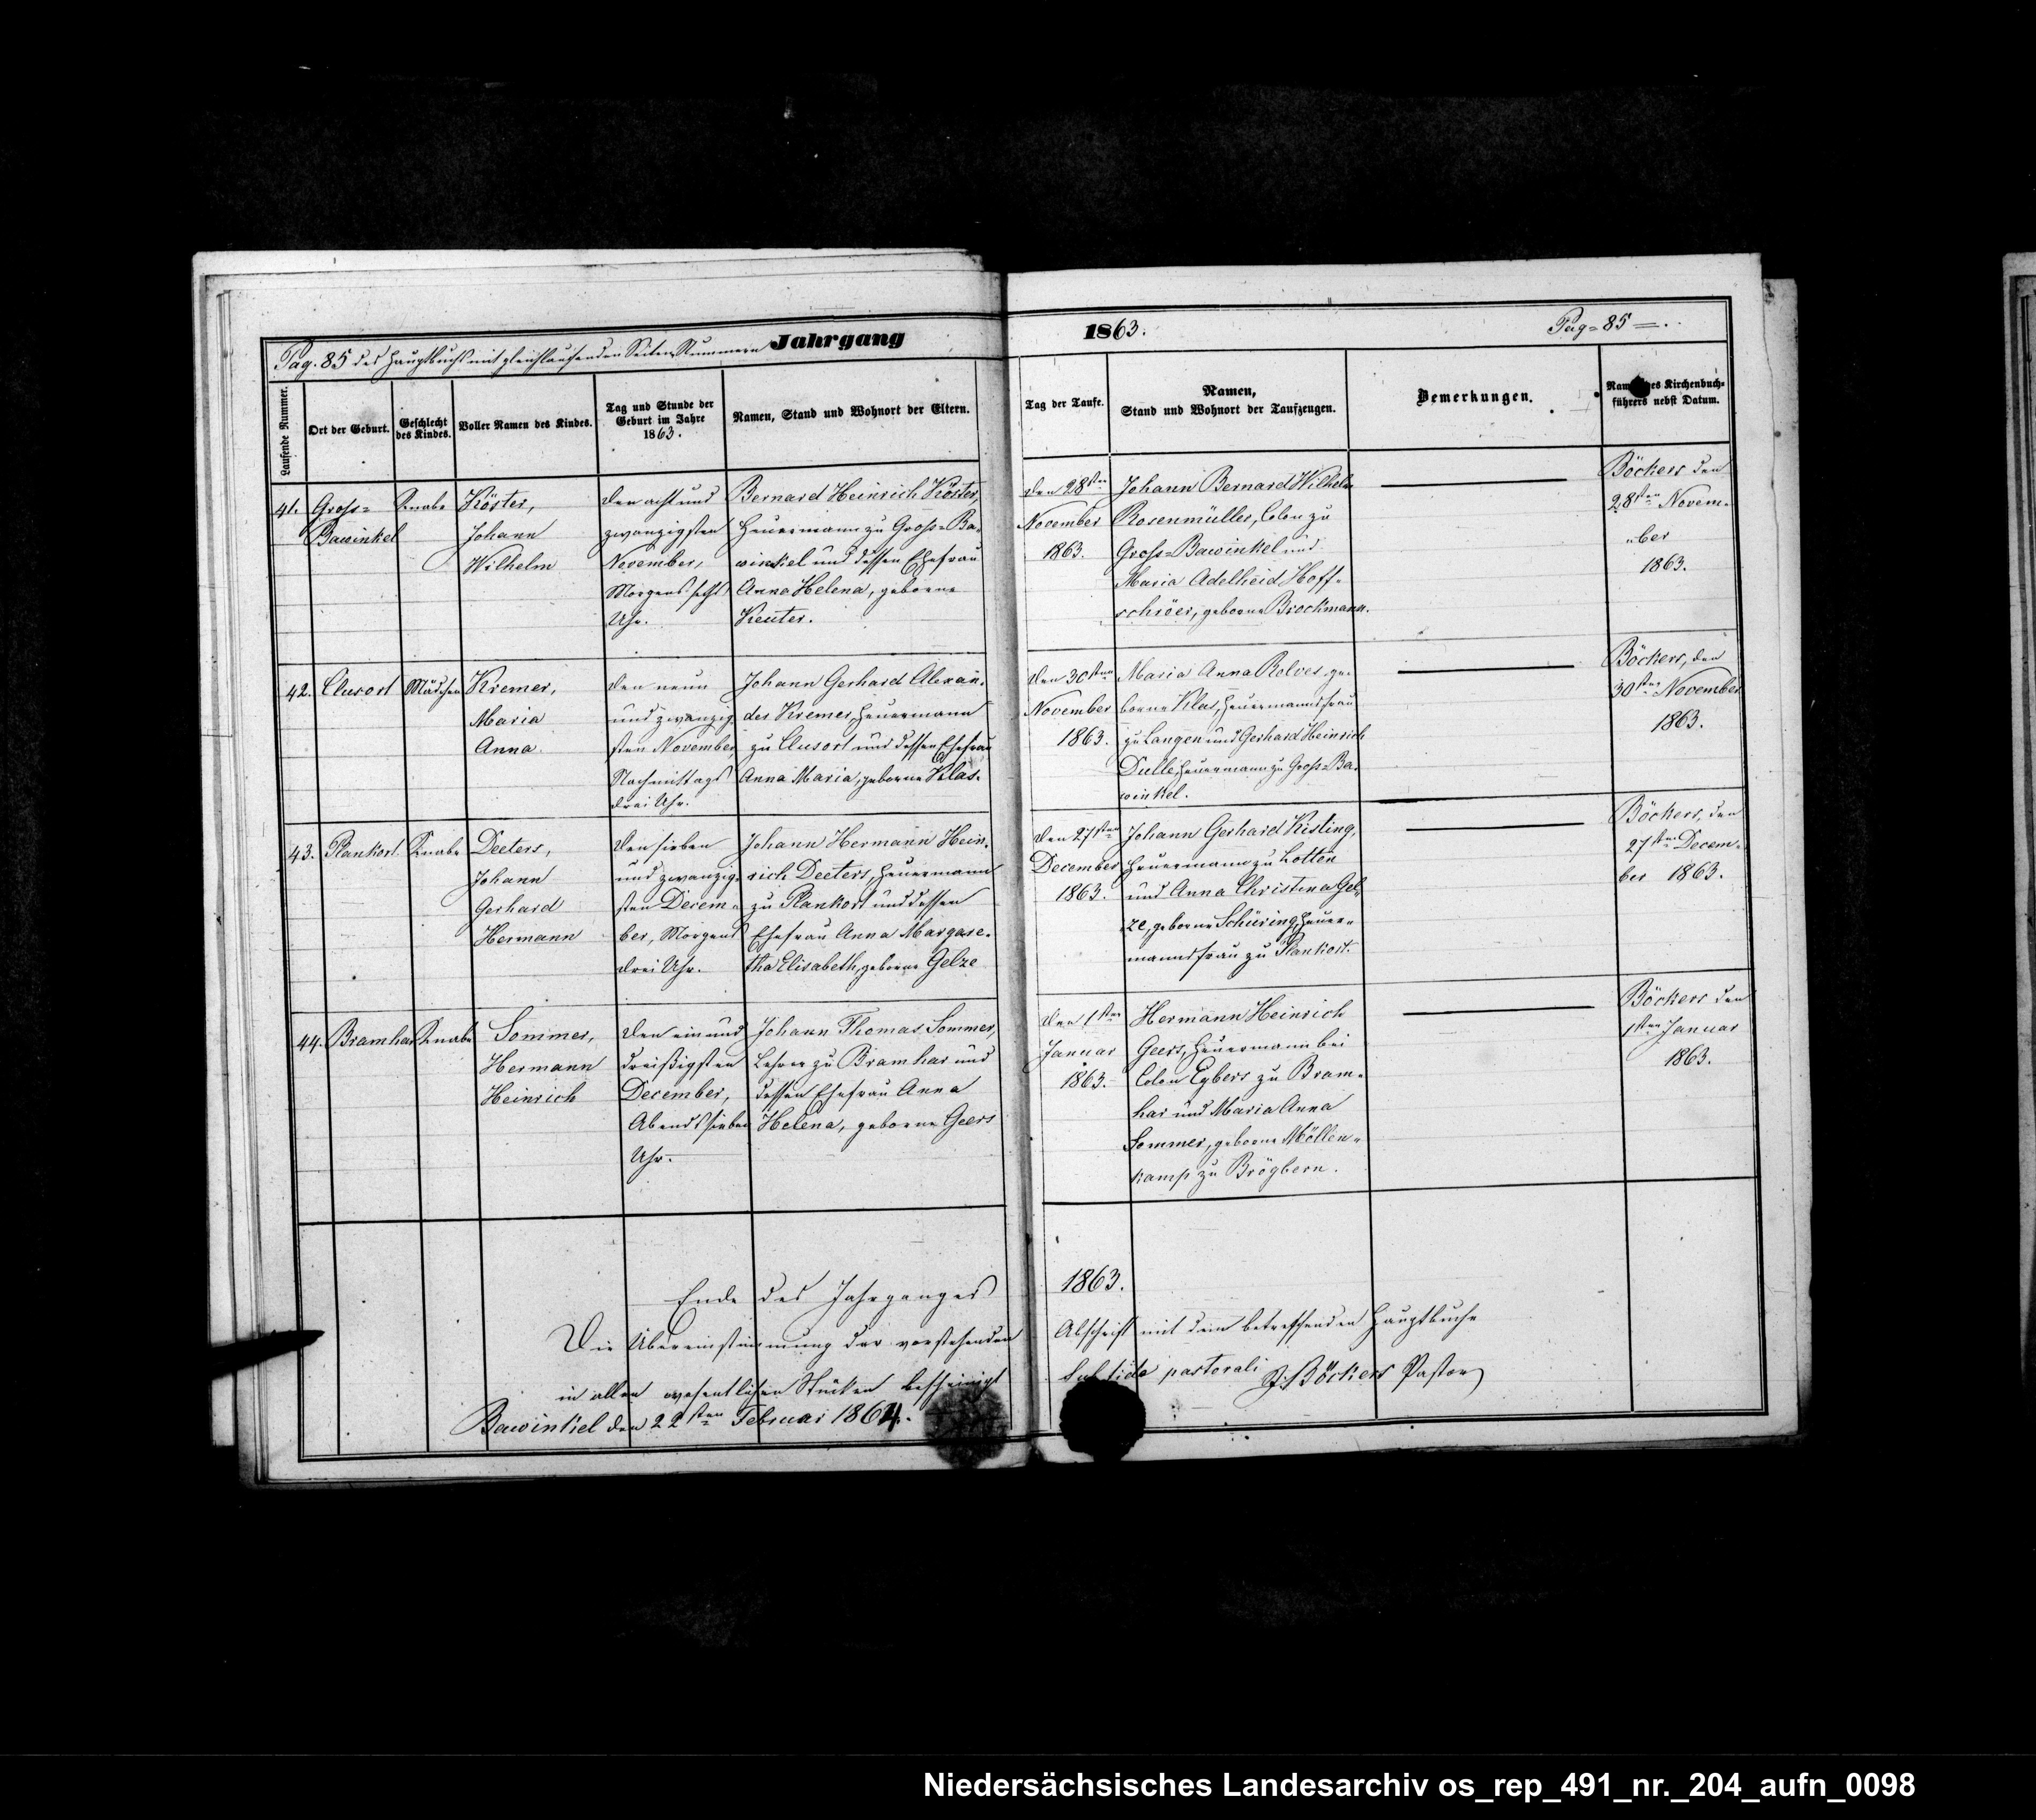 Pag. 85 des Hauptbuchs mit gleichlaufenden Seiten Nummern Jahrgang 1863. Pag. 85
Laufende Nummer.
Ort der Geburt.
Geschlecht
des Kindes.
Voller Namen des Kindes.
Tag und Stunde der
Geburt im Jahre
1863.
Namen, Stand und Wohnort der Eltern.
Tag der Taufe.
Namen,
Stand und Wohnort der Taufzeugen.
Bemerkungen.
des Kirchenbuch-
führers nebst Datum.
41.
Gross-
Bawinkel
Knabe
Köster,
Johann
Wilhelm
Den acht und
zwanzigsten
November,
Morgens sechs
Uhr.
Bernard Heinrich Köster,
Heuermann zu Gross-Ba-
winkel und dessen Ehefrau
Anna Helena, geborne
Keuter.
Den 28sten
November
1863.
Johann Bernard Wilhelm
Rosenmüller, Colon zu
Gross-Bawinkel und
Maria Adelheid Hoff-
schröer, geborne Brockmann.
Böckers den
28sten Novem-
ber
1863.
42.
Clusort
Mädchen
Kremer,
Maria
Anna
Den neun
und zwanzig-
sten November
Nachmittags
drei Uhr.
Johann Gerhard Alexan-
der Kremer, Heuermann
zu Clusort und dessen Ehefrau
Anna Maria, geborne Klas.
Den 30sten
November
1863.
Maria Anna Rolves ge-
borne Klas, Heuermannsfrau
zu Langen und Gerhard Heinrich
Dulle, Heuermann zu Gross-Ba-
winkel.
Böckers, den
30sten November
1863.
43.
Plankort
Knabe
Deeters,
Johann
Gerhard
Hermann
Den sieben
und zwanzig-
sten Decem-
ber, Morgens
drei Uhr.
Johann Hermann Hein-
rich Deeters, Heuermann
zu Plankort und dessen
Ehefrau Anna Margare-
tha Elisabeth, geborne Gelze
Den 27sten
December
1863.
Johann Gerhard Kisting,
Heuermann zu Lotten
und Anna Christina Gel-
ze, geborne Schüring, Heuer-
mannsfrau zu Plankort.
Böckers, den
27sten Decem-
ber 1863.
44.
Bramhar
Knabe
Sommer,
Hermann
Heinrich
Den ein und
dreißigsten
December,
Abends sieben
Uhr.
Johann Thomas Sommer,
Lehrer zu Bramhar und
dessen Ehefrau Anna
Helena, geborne Geers
Den 1sten
Januar
1863.
Hermann Heinrich
Geers, Heuermann bei
Colon Egbers zu Bram-
har und Maria Anna
Sommer, geborne Möllen-
kamp zu Brögbern.
Böckers den
1sten Januar
1863.
Ende des Jahrganges 1863.
Die Übereinstimmung der vorstehenden Abschrift mit dem betreffenden Hauptbuche
in allen wesentlichen Stücken bescheinigt sub fide pastorali Böckers Pastor
Bawinkel den 22sten Februar 1864.
Niedersächsisches Landesarchiv os_rep_491_nr._204_aufn_0098